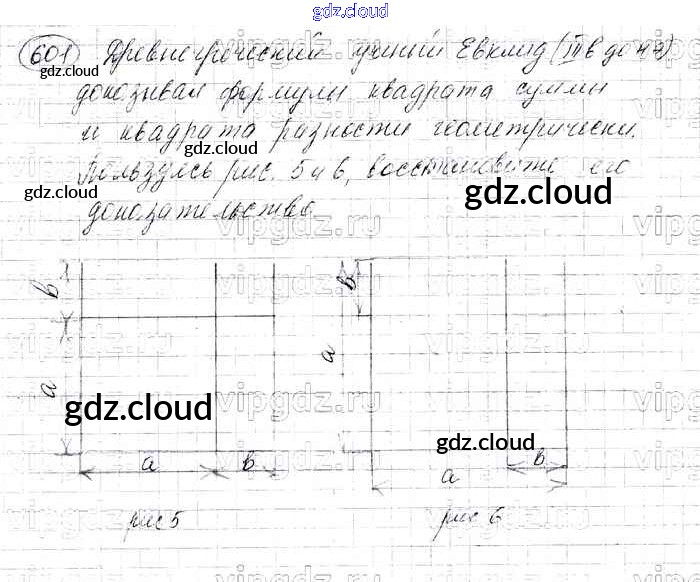 gdz.cloud
601 Древнегреческий учёный Евклид (III в до н э)
доказывал формулы квадрата суммы
и квадрата разности геометрически.
Пользуясь рис. 5 и 6, восстановите его
доказательство.
gdz.cloud
gdz.cloud
gdz.cloud
gdz.cloud
vipgdz.ru vipgdz.ru
в
в
a
a
gdz.cloud
gdz.cloud
a в
в
a
рис 5 рис 6